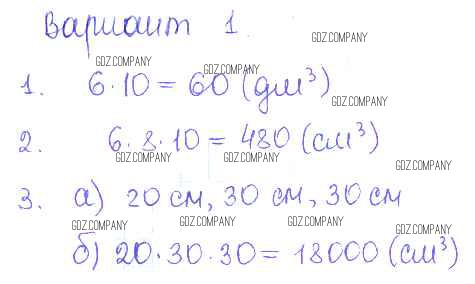 Вариант 1.
GDZ.COMPANY
GDZ.COMPANY GDZ.COMPANY
1. 6·10 = 60 (дм³)
GDZ.COMPANY
2. 6·8·10 = 480 (см³)
GDZ.COMPANY GDZ.COMPANY
GDZ.COMPANY
3. а) 20 см, 30 см, 30 см
GDZ.COMPANY GDZ.COMPANY GDZ.COMPANY GDZ.COMPANY
б) 20·30·30 = 18000 (см³)